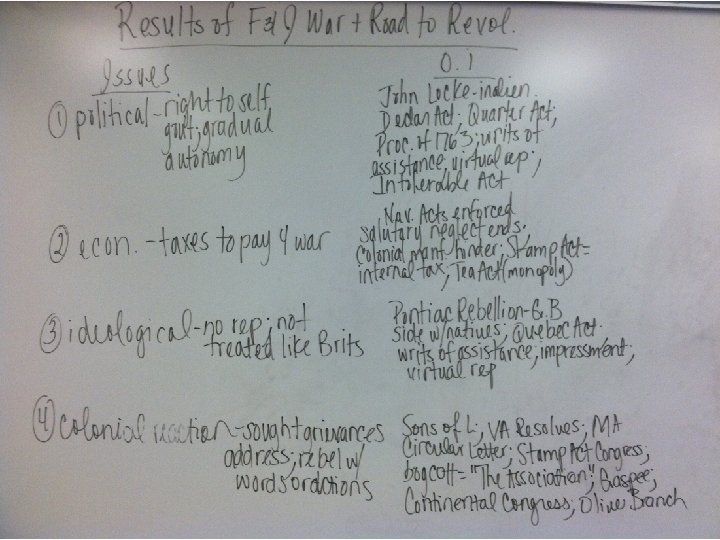 Results of F&I War + Road to Revol.
Issues
① political - right to self
govt; gradual
autonomy
O.I
John Locke - indien.
Declan Act; Quarter Act;
Proc. of 1763; writs of
assistance; virtual rep;
Intolerable Act
② econ. - taxes to pay 4 war
Nav. Acts enforced
salutary neglect ends;
Colonial manf. hinder; Stamp Act =
internal tax; Tea Act (monopoly)
③ ideological - no rep; not
treated like Brits
Pontiac Rebellion - G.B
side w/natives; Quebec Act
writs of assistance; impressment;
virtual rep
④ colonial reaction - sought grievances
address; rebel w/
words or actions
Sons of L; VA Resolves; MA
Circular Letter; Stamp Act Congress;
boycott = "The Association"; Gaspee;
Continental Congress; Olive Branch